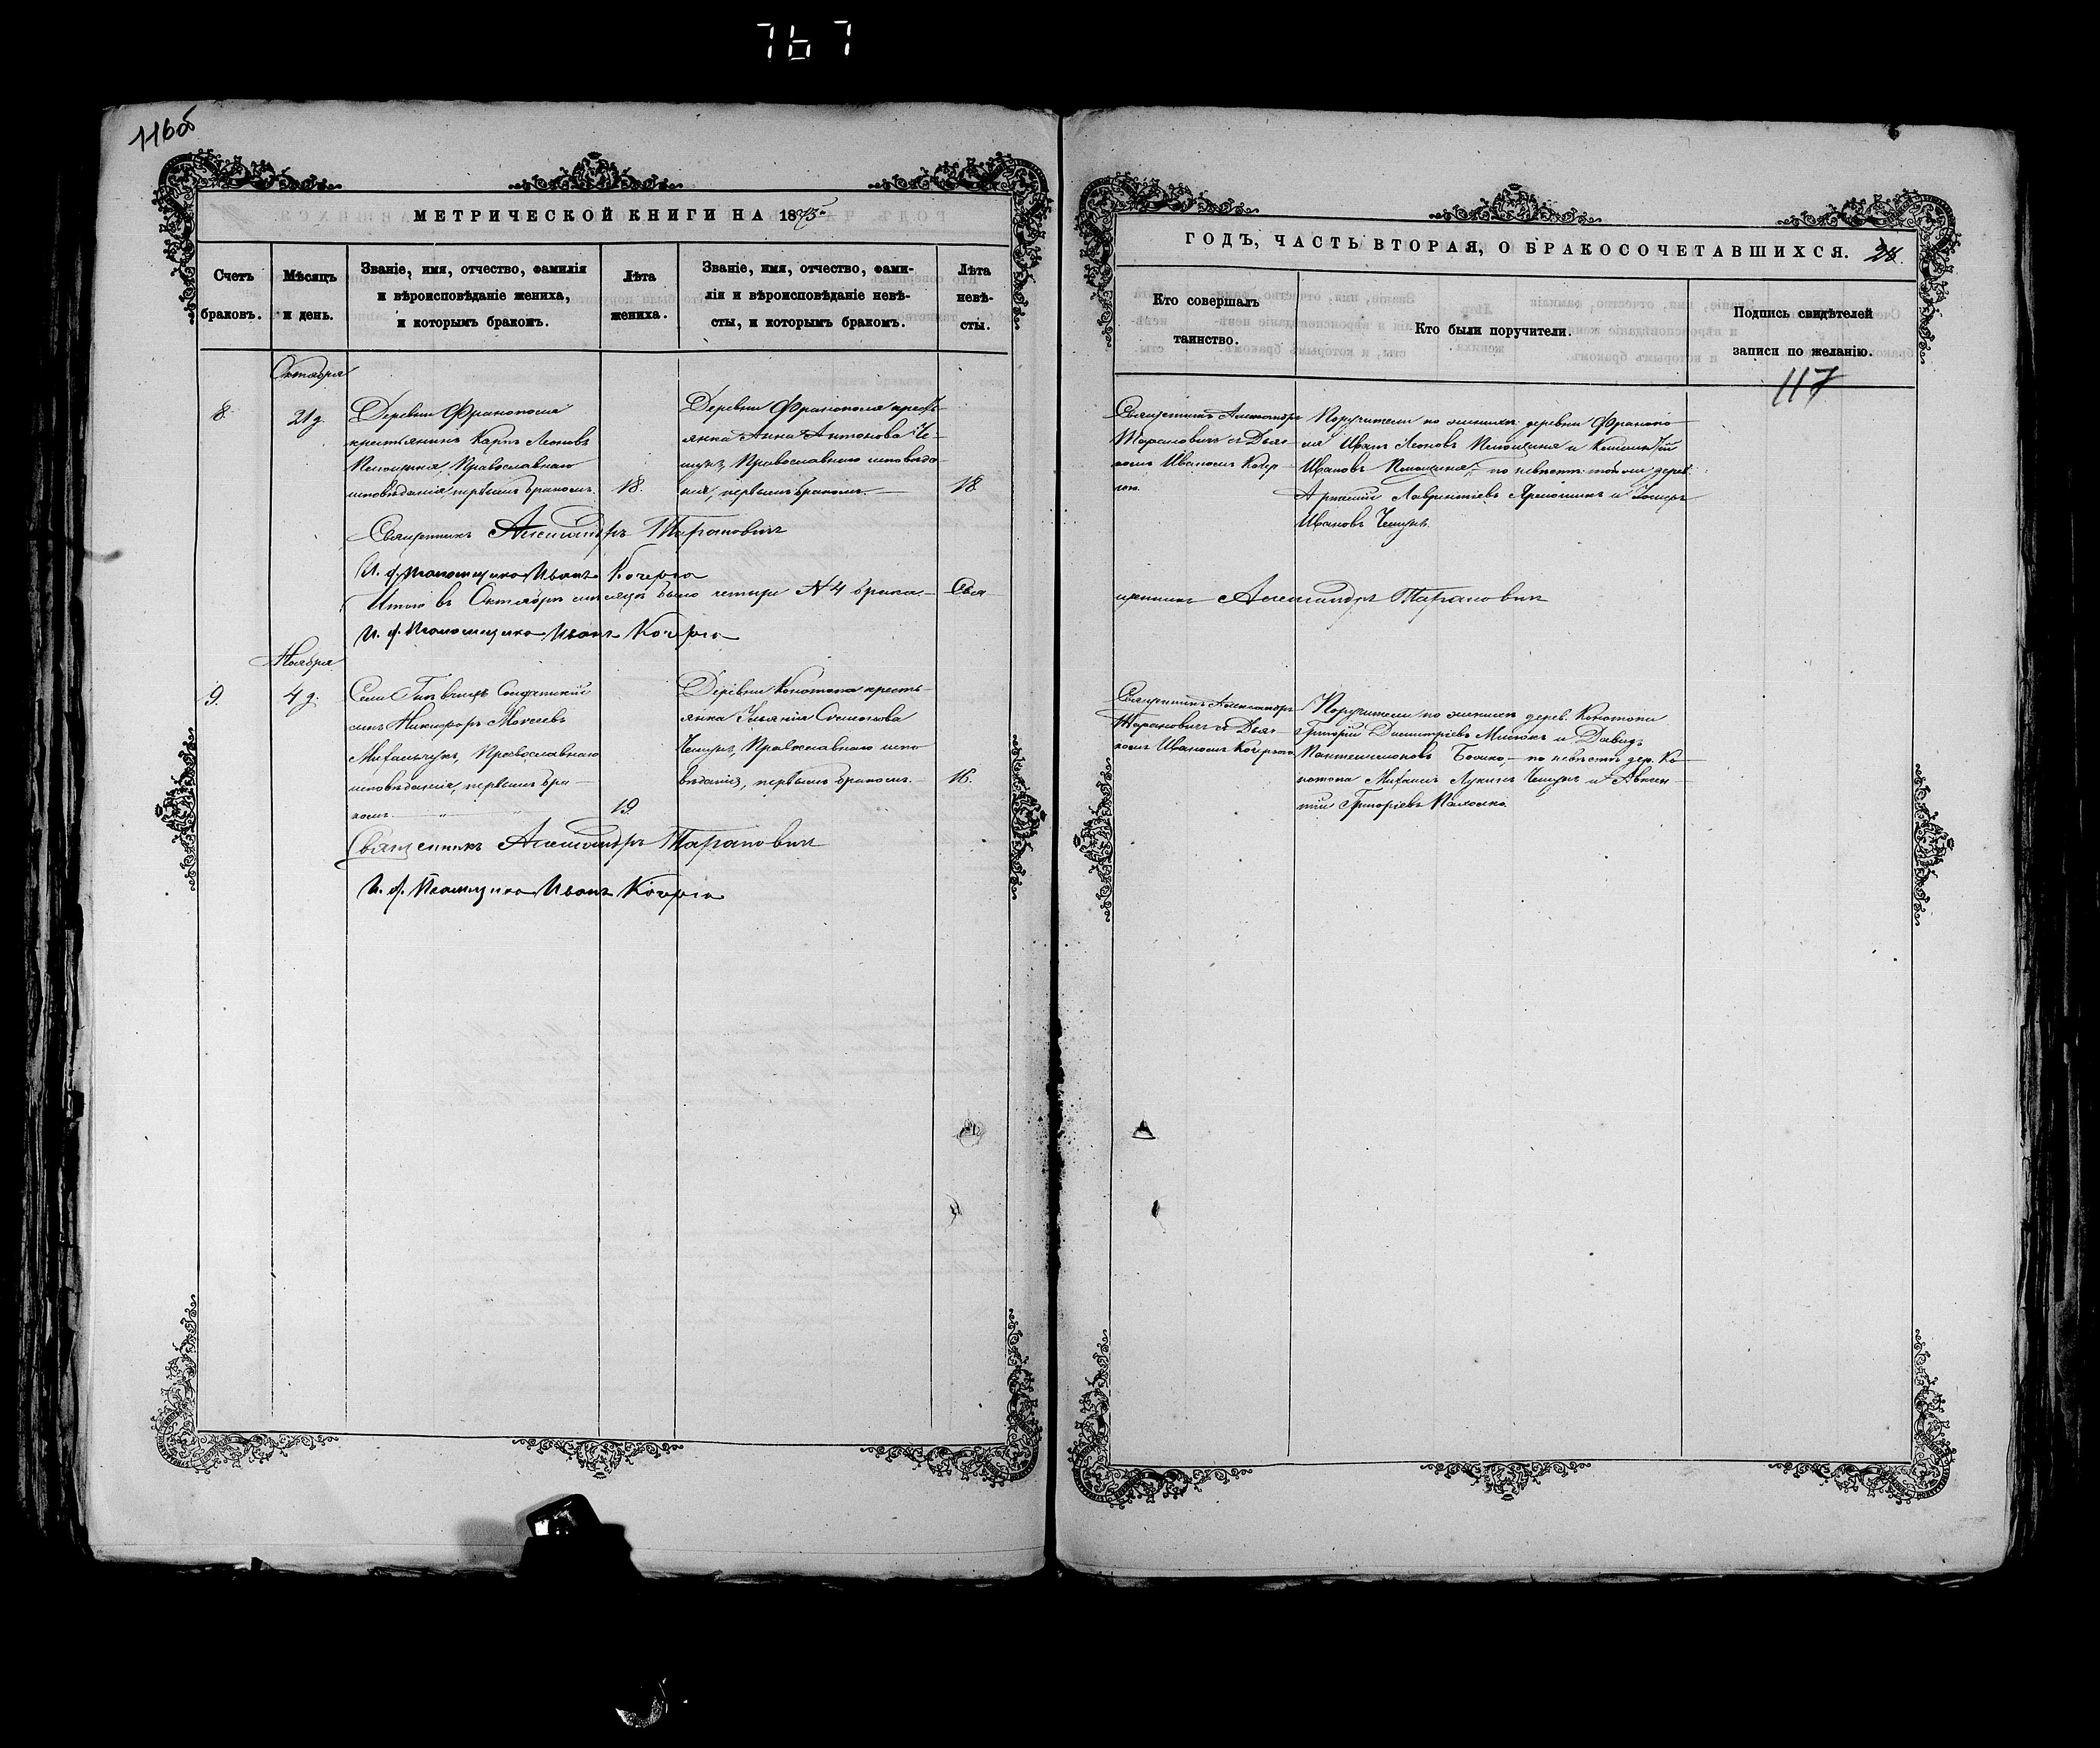 767
116об
МЕТРИЧЕСКОЙ КНИГИ НА 1875
Счетъ браковъ.
Мѣсяцъ и день.
Званіе, имя, отчество, фамилія и вѣроисповѣданіе жениха, и которымъ бракомъ.
Лѣта жениха.
Званіе, имя, отчество, фами-
лія и вѣроисповѣданіе невѣ-
сты, и которымъ бракомъ.
Лѣта невѣ-
сты.
Октября
8.
21 д.
Деревни Франополя
крестьянинъ Карпъ Леоновъ
Православнаго
исповѣданія, первымъ бракомъ.
18.
Деревни Франополя кресть-
янка Анна Антонова Че-
шукъ, Православнаго исповѣда-
нія, первымъ бракомъ. —
18
Священникъ Александръ Тарановичъ
И. д. Псаломщика Иванъ Кочерго
Итого въ Октябрѣ мѣсяцѣ было четыре № 4 брака. — Свя-
И. д. Псаломщика Иванъ Кочерго
Ноября
9.
4 д.
Села
Никифоръ Моисеевъ
Михальчукъ, Православнаго
исповѣданія, первымъ бра-
комъ.
19.
Деревни Конотопа кресть-
янка Ульянія Семенова
Чешукъ, Православнаго испо-
вѣданія, первымъ бракомъ.
16.
Священникъ Александръ Тарановичъ
И. д. Псаломщика Иванъ Кочерго
ГОДЪ, ЧАСТЬ ВТОРАЯ, О БРАКОСОЧЕТАВШИХСЯ. 28.
Кто совершалъ таинство.
Кто были поручители.
Подпись свидѣтелей записи по желанію.
117
Священникъ Александръ
Тарановичъ съ Дьяч-
комъ Иваномъ Кочер-
гою.
Поручители по женихѣ деревни Франопо-
ля Иванъ Леоновъ и
Ивановъ по невѣстѣ той же дерев.
Лаврентіевъ и Іосифъ
Ивановъ Чешукъ.
щенникъ Александръ Тарановичъ
Священникъ Александръ
Тарановичъ съ Дьяч-
комъ Иваномъ Кочергою
Поручители по женихѣ дерев. Конотопа
Григорій Димитріевъ и Давидъ
Пантелеимоновъ Бошко, — по невѣстѣ дер. Ко-
нотопа Михаилъ Лукинъ Чешукъ и Авксен-
тій Григоріевъ